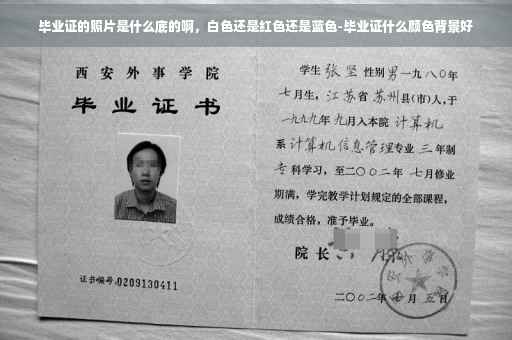 毕业证的照片是什么底的啊，白色还是红色还是蓝色-毕业证什么颜色背景好
西安外事学院
毕业证书
证书编号:0209130411
学生 张坚 性别男 一九八〇年
七月生，江苏省苏州县(市)人，于
一九九九年九月入本院 计算机
系 计算机信息管理专业 三年制
专科学习，至二〇〇二年七月修业
期满，学完教学计划规定的全部课程，
成绩合格，准予毕业。
院长
二〇〇二年 月五日